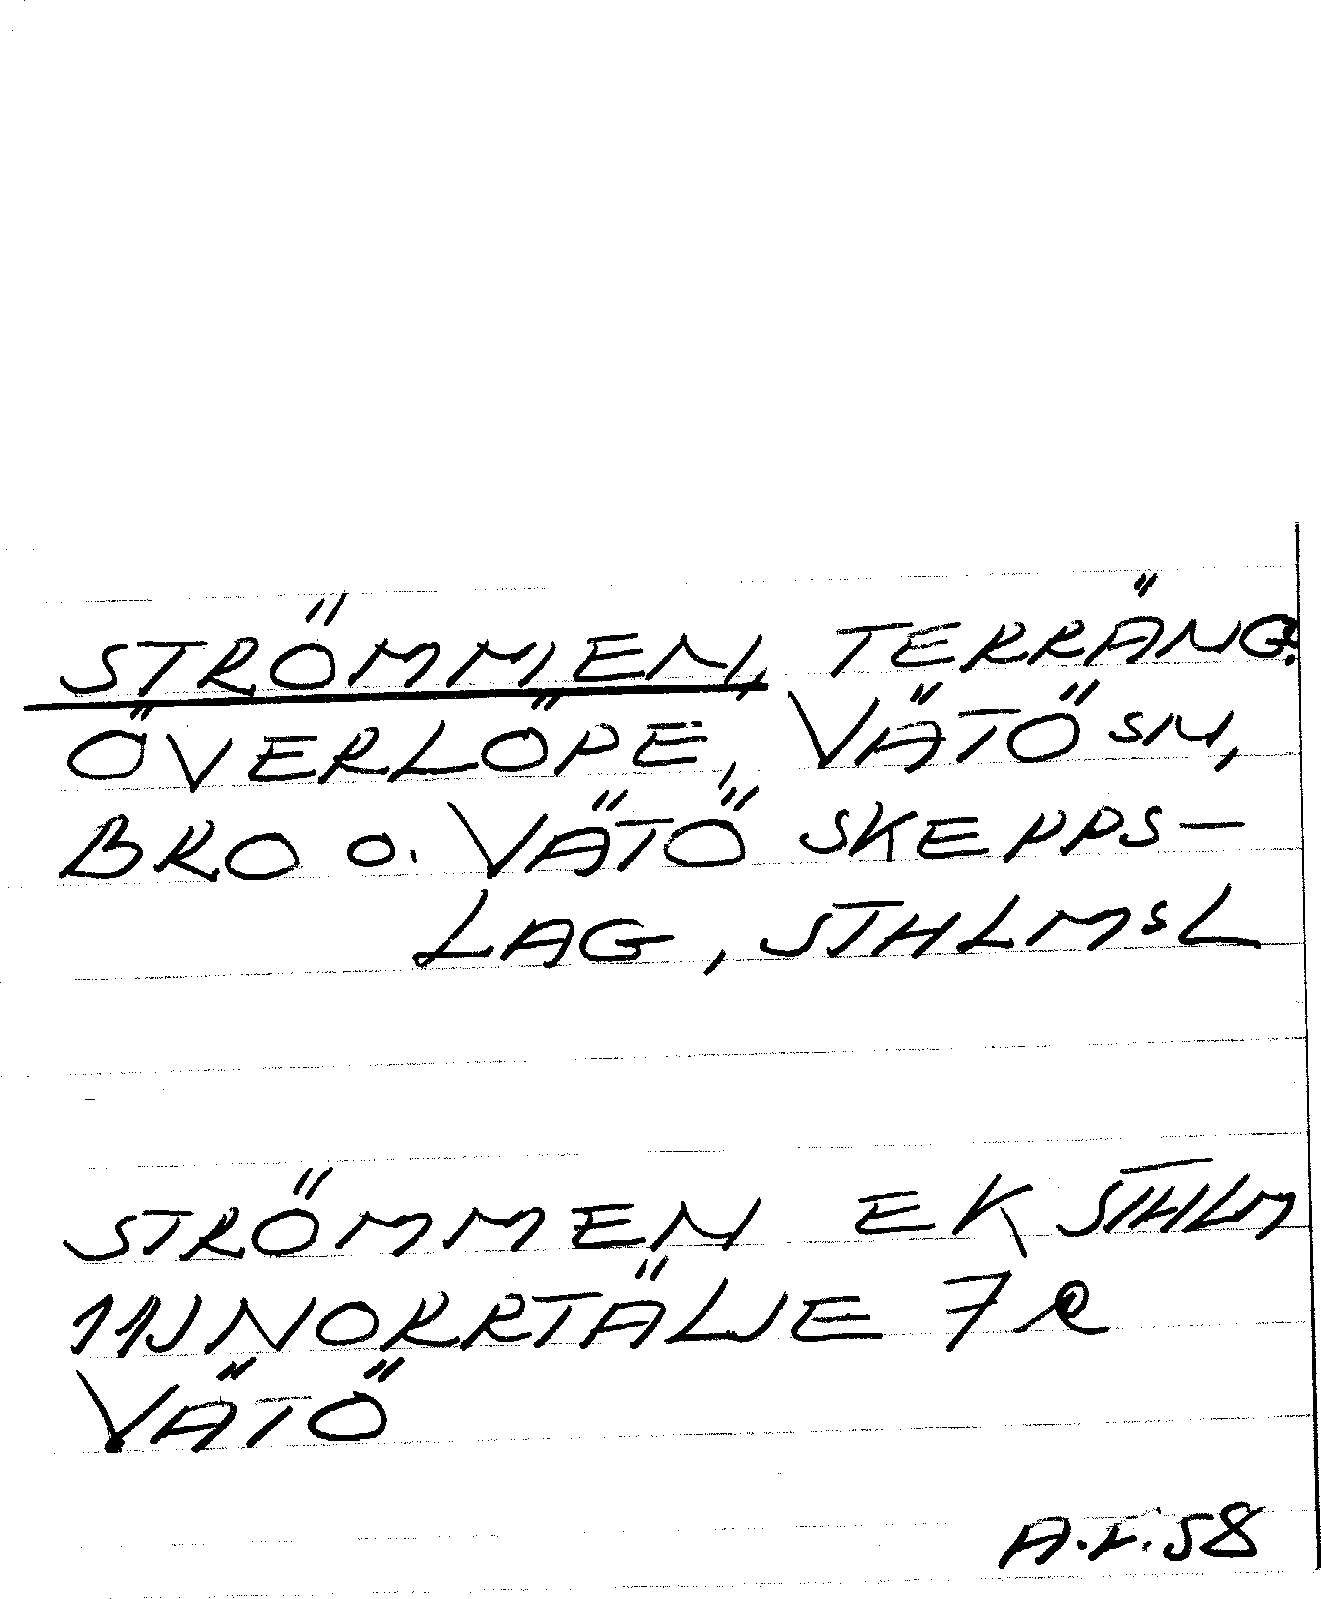 STRÖMMEN, TERRÄNG.
ÖVERLÖPE, VÄTÖ SN,
BRO O. VÄTÖ SKEPPS-
LAG, STHLMSL
STRÖMMEN EK STHLM
11J NORRTÄLJE 7 R
VÄTÖ
58